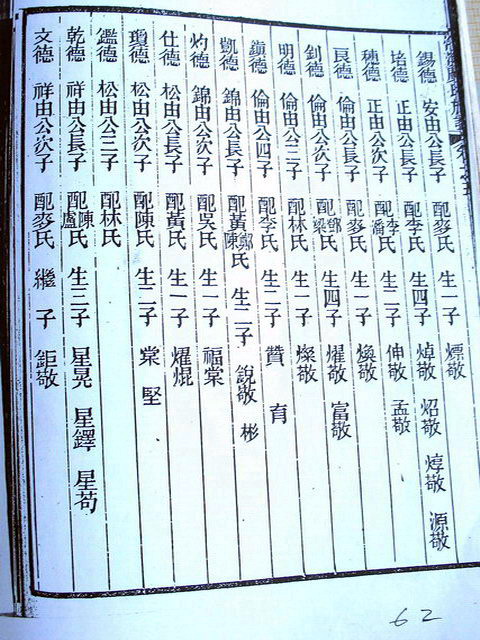 錫德 安由公長子 配麥氏 生一子 熛敬
培德 正由公長子 配李氏 生四子 焯敬 炤敬 焞敬 源敬
穗德 正由公次子 配李潘氏 生二子 伸敬 孟敬
良德 倫由公長子 配麥氏 生一子 煥敬
釗德 倫由公次子 配鄧梁氏 生四子 燿敬 富敬
明德 倫由公三子 配林氏 生一子 燦敬
倫由公四子 配李氏 生二子 贊 育
凱德 錦由公長子 配黃鄭陳氏 生二子 銳敬 彬
灼德 錦由公次子 配吳氏 生一子 福棠
仕德 松由公長子 配黃氏 生一子 燿焜
瓊德 松由公次子 配陳氏 生二子 棠 堅
鑑德 松由公三子 配林氏
乾德 祥由公長子 配陳盧氏 生三子 星晃 星鐸 星苟
文德 祥由公次子 配麥氏 繼子 鉅敬
62